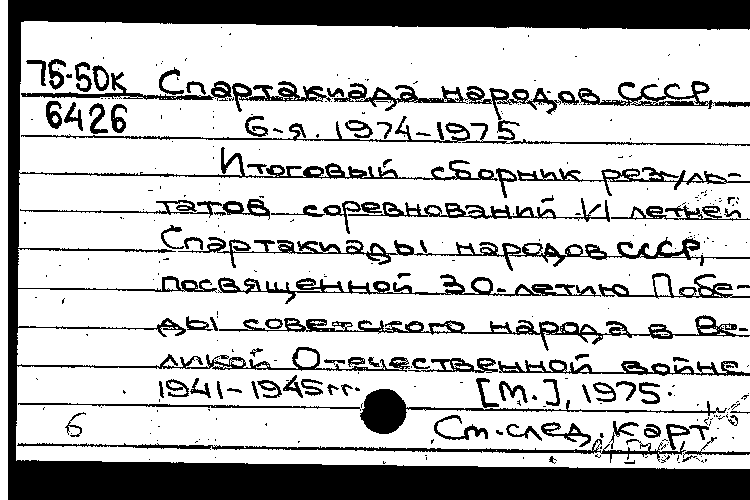 75-50к Спартакиада народов СССР,
6426 6-я. 1974-1975.
Итоговый сборник резуль-
татов соревнований VI летней
Спартакиады народов СССР,
посвященной 30-летию Побе-
ды советского народа в Ве-
ликой Отечественной войне
1941-1945гг. [М.], 1975.
6 См. след. карт